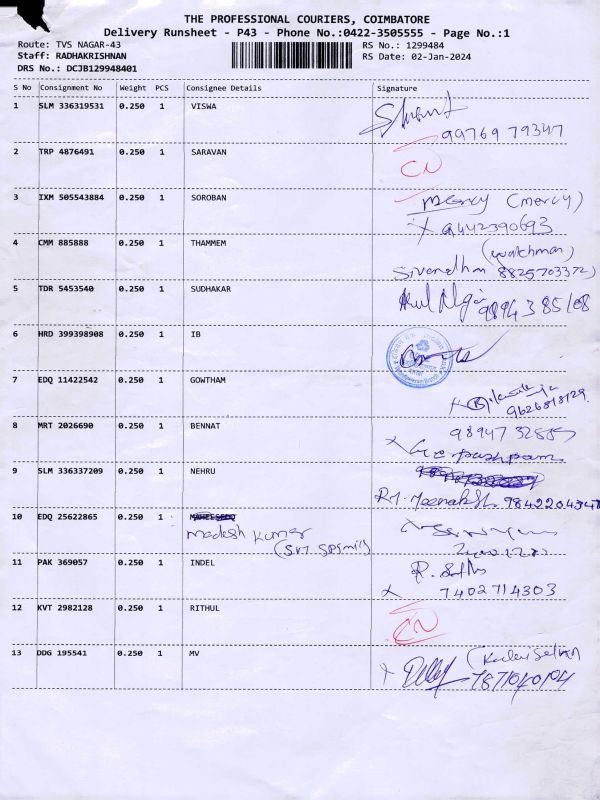 THE PROFESSIONAL COURIERS, COIMBATORE
Delivery Runsheet - P43 - Phone No.:0422-3505555 - Page No.:1
Route: TVS NAGAR-43 RS No.: 1299484
Staff: RADHAKRISHNAN RS Date: 02-Jan-2024
DRS No.: DCJB129948401
S No Consignment No Weight PCS Consignee Details Signature
1 SLM 336319531 0.250 1 VISWA
99769 79347
2 TRP 4876491 0.250 1 SARAVAN
CN
3 IXM 505543884 0.250 1 SOROBAN Mercy (mercy)
X 9442390693
4 CMM 885888 0.250 1 THAMMEM (watchman)
8825703372
5 TDR 5453540 0.250 1 SUDHAKAR
6 HRD 399398908 0.250 1 IB
7 EDQ 11422542 0.250 1 GOWTHAM
8 MRT 2026690 0.250 1 BENNAT
pushpam
9 SLM 336337209 0.250 1 NEHRU
10 EDQ 25622865 0.250 1
madesh Kumar
11 PAK 369057 0.250 1 INDEL
X 7402714303
12 KVT 2982128 0.250 1 RITHUL
CN
13 DDG 195541 0.250 1 MV